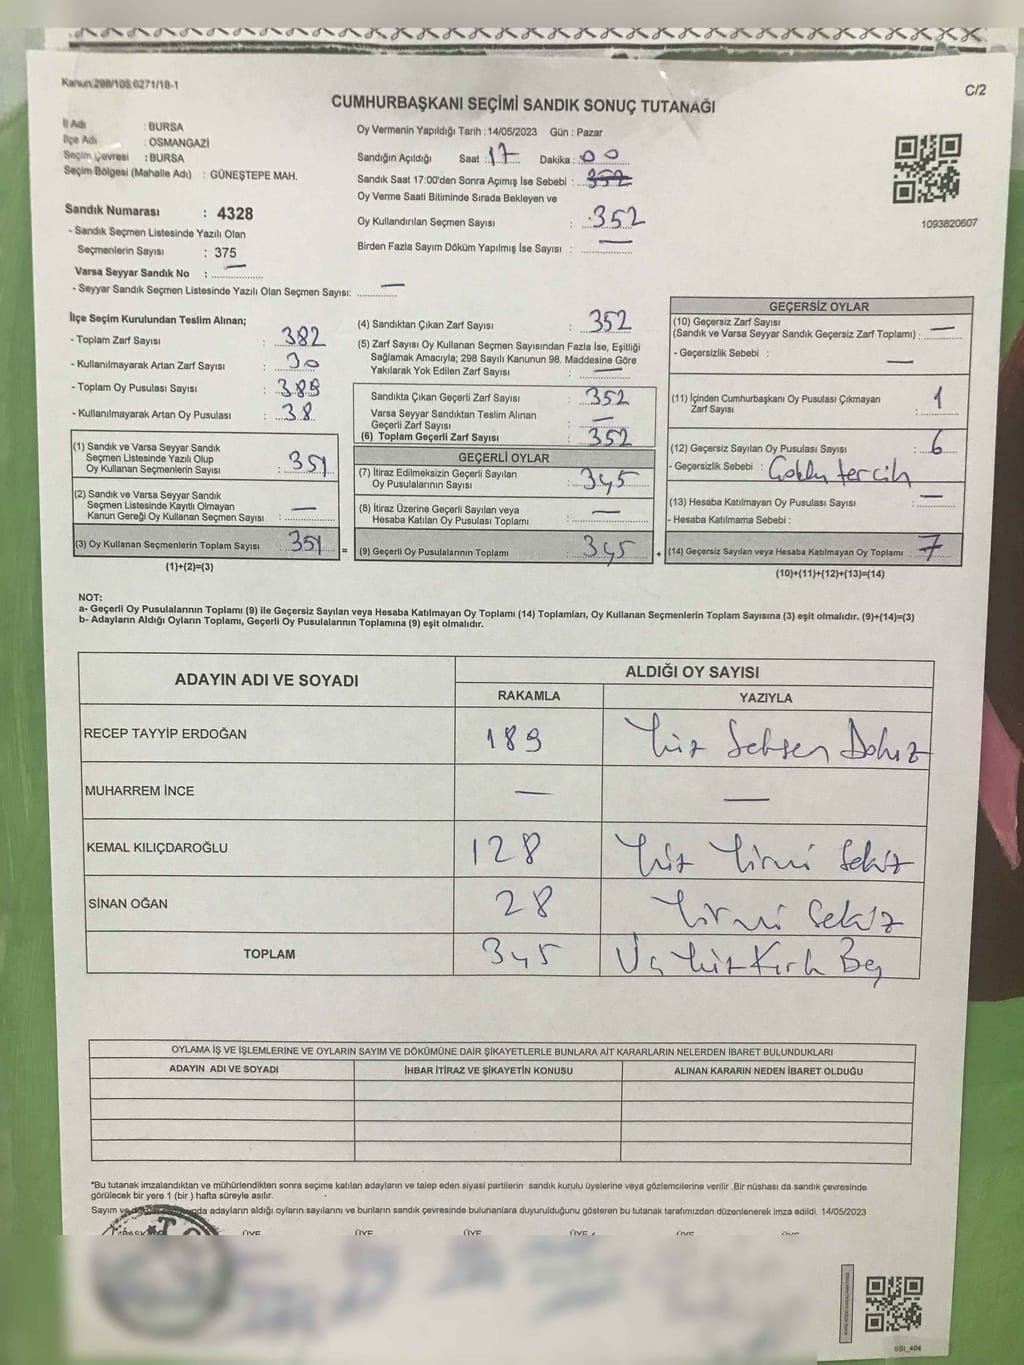 Kanun:298/105;6271/18-1
C/2
CUMHURBAŞKANI SEÇİMİ SANDIK SONUÇ TUTANAĞI
İl Adı : BURSA
İlçe Adı : OSMANGAZİ
Seçim Çevresi : BURSA
Seçim Bölgesi (Mahalle Adı) : GÜNEŞTEPE MAH.
Sandık Numarası : 4328
- Sandık Seçmen Listesinde Yazılı Olan
Seçmenlerin Sayısı : 375
Varsa Seyyar Sandık No : —
- Seyyar Sandık Seçmen Listesinde Yazılı Olan Seçmen Sayısı: —
Oy Vermenin Yapıldığı Tarih : 14/05/2023 Gün : Pazar
Sandığın Açıldığı Saat : 17 Dakika : 00
Sandık Saat 17:00'dan Sonra Açımış İse Sebebi : 352
Oy Verme Saati Bitiminde Sırada Bekleyen ve
Oy Kullandırılan Seçmen Sayısı : 352
Birden Fazla Sayım Döküm Yapılmış İse Sayısı : —
1093820607
İlçe Seçim Kurulundan Teslim Alınan;
- Toplam Zarf Sayısı : 382
- Kullanılmayarak Artan Zarf Sayısı : 30
- Toplam Oy Pusulası Sayısı : 389
- Kullanılmayarak Artan Oy Pusulası : 38
(1) Sandık ve Varsa Seyyar Sandık
Seçmen Listesinde Yazılı Olup
Oy Kullanan Seçmenlerin Sayısı : 351
(2) Sandık ve Varsa Seyyar Sandık
Seçmen Listesinde Kayıtlı Olmayan
Kanun Gereği Oy Kullanan Seçmen Sayısı : —
(3) Oy Kullanan Seçmenlerin Toplam Sayısı : 351 =
(1)+(2)=(3)
(4) Sandıktan Çıkan Zarf Sayısı : 352
(5) Zarf Sayısı Oy Kullanan Seçmen Sayısından Fazla İse, Eşitliği
Sağlamak Amacıyla; 298 Sayılı Kanunun 98. Maddesine Göre
Yakılarak Yok Edilen Zarf Sayısı : —
Sandıkta Çıkan Geçerli Zarf Sayısı : 352
Varsa Seyyar Sandıktan Teslim Alınan
Geçerli Zarf Sayısı : —
(6) Toplam Geçerli Zarf Sayısı : 352
GEÇERLİ OYLAR
(7) İtiraz Edilmeksizin Geçerli Sayılan
Oy Pusulalarının Sayısı : 345
(8) İtiraz Üzerine Geçerli Sayılan veya
Hesaba Katılan Oy Pusulası Toplamı : —
(9) Geçerli Oy Pusulalarının Toplamı : 345 +
GEÇERSİZ OYLAR
(10) Geçersiz Zarf Sayısı
(Sandık ve Varsa Seyyar Sandık Geçersiz Zarf Toplamı) : —
- Geçersizlik Sebebi : —
(11) İçinden Cumhurbaşkanı Oy Pusulası Çıkmayan
Zarf Sayısı : 1
(12) Geçersiz Sayılan Oy Pusulası Sayısı : 6
- Geçersizlik Sebebi : Çoklu tercih
(13) Hesaba Katılmayan Oy Pusulası Sayısı : —
- Hesaba Katılmama Sebebi :
(14) Geçersiz Sayılan veya Hesaba Katılmayan Oy Toplamı : 7
(10)+(11)+(12)+(13)=(14)
NOT:
a- Geçerli Oy Pusulalarının Toplamı (9) ile Geçersiz Sayılan veya Hesaba Katılmayan Oy Toplamı (14) Toplamları, Oy Kullanan Seçmenlerin Toplam Sayısına (3) eşit olmalıdır. (9)+(14)=(3)
b- Adayların Aldığı Oyların Toplamı, Geçerli Oy Pusulalarının Toplamına (9) eşit olmalıdır.
ADAYIN ADI VE SOYADI
ALDIĞI OY SAYISI
RAKAMLA YAZIYLA
RECEP TAYYİP ERDOĞAN 189 Yüz Seksen Dokuz
MUHARREM İNCE — —
KEMAL KILIÇDAROĞLU 128 Yüz Yirmi Sekiz
SİNAN OĞAN 28 Yirmi Sekiz
TOPLAM 345 Üç Yüz Kırk Beş
OYLAMA İŞ VE İŞLEMLERİNE VE OYLARIN SAYIM VE DÖKÜMÜNE DAİR ŞİKAYETLERLE BUNLARA AİT KARARLARIN NELERDEN İBARET BULUNDUKLARI
ADAYIN ADI VE SOYADI İHBAR İTİRAZ VE ŞİKAYETİN KONUSU ALINAN KARARIN NEDEN İBARET OLDUĞU
*Bu tutanak imzalandıktan ve mühürlendikten sonra seçime katılan adayların ve talep eden siyasi partilerin sandık kurulu üyelerine veya gözlemcilerine verilir .Bir nüshası da sandık çevresinde
görülecek bir yere 1 (bir ) hafta süreyle asılır.
Sayım ve adayların aldığı oyların sayılarını ve bunların sandık çevresinde bulunanlara duyurulduğunu gösteren bu tutanak tarafımızdan düzenlenerek imza edildi. 14/05/2023
ÜYE ÜYE ÜYE ÜYE ÜYE
SSI_404